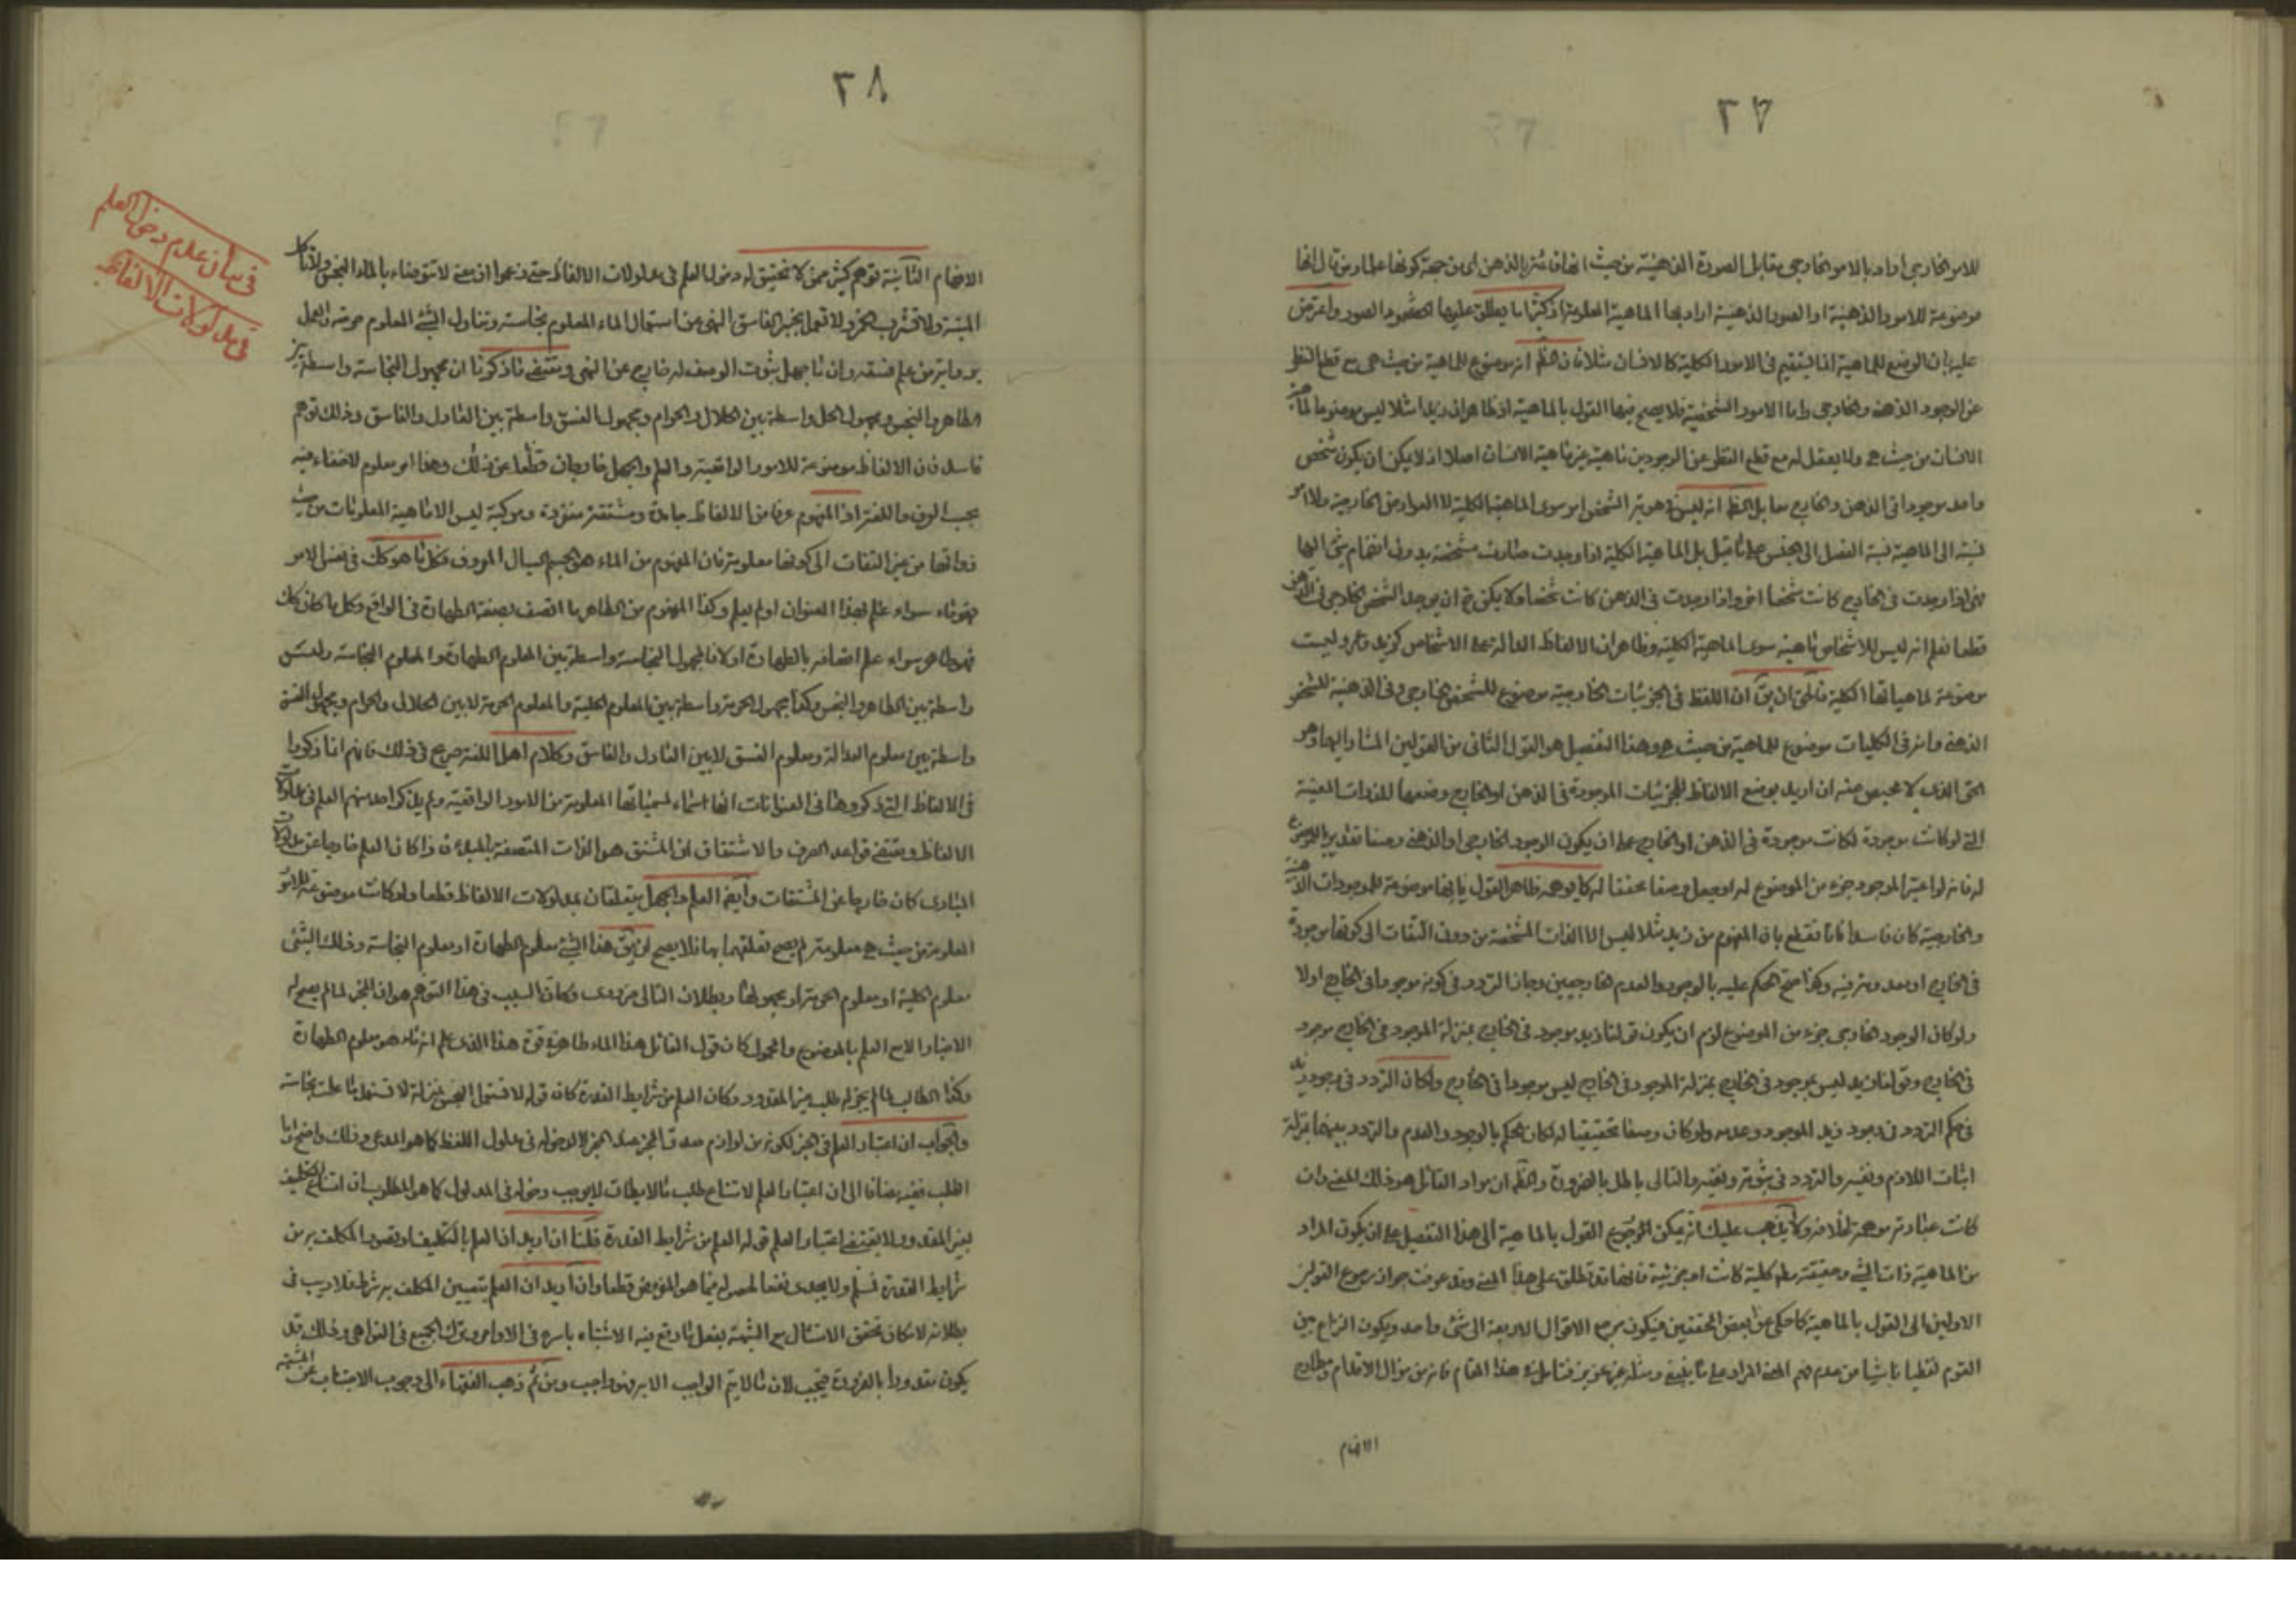 ٢٧
للامر الخارجي اراد بالامر الخارجي مقابل الصورة الذهنية من حيث انها قائمة بالذهن اي من جهة كونها علما ومن قال انها
موضوعة للامور الذهنية او الصور الذهنية اراد بها الماهية المعلومة اذ كثيرا ما يطلق عليها الصور واعترض
عليه بان الوضع للماهية انما يستقيم في الامور الكلية كالانسان مثلا فان الظ انه موضوع للماهية من حيث هي مع قطع النظر
عن الوجود الذهني والخارجي واما الامور الشخصية فلا يصح فيها القول بالماهية اذ ظاهر ان زيدا مثلا ليس موضوعا لماهية
الانسان من حيث هي ولا يعقل له مع قطع النظر عن الوجودين ماهية غير ماهية الانسان اصلا اذ لا يمكن ان يكون شخص
واحد موجودا في الذهن والخارج معا بل الظ انه ليس في هوية الشخص امر سوى الماهية الكلية لا العوارض الخارجية ولا امر
نسبته الى الماهية نسبة الفصل الى الجنس على ما قيل بل الماهية الكلية اذا وجدت صارت مشخصة بدون انضمام شئ اليها
فهي اذا وجدت في الخارج كانت شخصا اخر واذا وجدت في الذهن كانت شخصا ولا يمكن ح ان يوجد الشخص الخارجي في الذهن
قطعا فعلم انه ليس للاشخاص ماهية سوى الماهية الكلية وظاهر ان الالفاظ الدالة على الاشخاص كزيد وعمرو ليست
موضوعة لماهياتها الكلية فالحق ان يق ان اللفظ في الجزئيات الخارجية موضوع للشخص الخارجي وفي الذهنية للشخص
الذهني وانه في الكليات موضوع للماهية من حيث هي وهذا التفصيل هو القول الثاني من القولين المشار اليهما وهو
الحق الذي لا محيص عنه ان اريد بوضع الالفاظ للجزئيات الموجودة في الذهن او الخارج وضعها للذوات المعينة
التي لو كانت موجودة لكانت موجودة في الذهن او الخارج على ان يكون الوجود الخارجي او الذهني وصفا تقديريا للموضوع
له فانه لو اعتبر الوجود جزء من الموضوع له او جعل وصفا محققا له كما يوهمه ظاهر القول بانها موضوعة للموجودات الذهنية
والخارجية كان فاسدا فانا نقطع بان المفهوم من زيد مثلا ليس الا الذات المشخصة من دون التفات الى كونها موجودة
في الخارج او معدومة فيه وكذا صح الحكم عليه بالوجود والعدم الخارجيين وجاز التردد في كونه موجودا في الخارج اولا
ولو كان الوجود الخارجي جزء من الموضوع لزم ان يكون قولنا زيد موجود في الخارج بمنزلة الموجود في الخارج موجود
في الخارج وقولنا زيد ليس بموجود في الخارج بمنزلة الموجود في الخارج ليس موجودا في الخارج ولكان التردد في وجود زيد
في حكم التردد في وجود زيد الموجود وعدمه ولو كان وصفا تحقيقيا له لكان الحكم بالوجود والعدم والتردد بينهما بمنزلة
اثبات اللازم ونفيه والتردد في ثبوته ونفيه والتالي باطل بالضرورة والظ ان مراد القائل هو ذلك المعنى وان
كانت عبارته موهمة لخلافه ولا يذهب عليك انه يمكن رجوع القول بالماهية الى هذا التفصيل على ان يكون المراد
من الماهية ذات الشئ وحقيقته مط كلية كانت او جزئية فانها قد تطلق على هذا المعنى وقد عرفت جواز رجوع القولين
الاولين الى القول بالماهية كما حكى عن بعض المحققين فيكون مرجع الاقوال الاربعة الى شئ واحد ويكون النزاع بين
القوم لفظيا ناشيا من عدم فهم المعنى المراد على ما ينبغي ومثله غير عزيز فتامل في هذا المقام فانه من مزال الاقدام ومطارح
الافهام
٢٨
في بيان عدم دخول العلم
في مدلولات الالفاظ
الافهام الثانية توهم كثير ممن لا تحقيق له دخول العلم في مدلولات الالفاظ حتى زعموا ان معنى لا تتوضاء بالماء النجس ولا تاكل
الميتة ولا تشرب الخمر ولا تعمل بخبر الفاسق النهي عن استعمال الماء المعلوم نجاسته وتناول الشئ المعلوم حرمته والعمل
برواية من علم فسقه وان ما جهل ثبوت الوصف له خارج عن النهي ومقتضى ما ذكرنا ان مجهول النجاسة واسطة بين
الطاهر والنجس ومجهول الحل واسطة بين الحلال والحرام ومجهول الفسق واسطة بين العادل والفاسق وذلك توهم
فاسد فان الالفاظ موضوعة للامور الواقعية والعلم والجهل خارجان قطعا عن ذلك وهذا امر معلوم لا خفاء فيه
بحسب العرف واللغة اذ المفهوم عرفا من الالفاظ جامدة ومشتقة مفردة ومركبة ليس الا ماهية المعلومات من حيث
ذواتها من غير التفات الى كونها معلومة فان المفهوم من الماء هو الجسم السيال المعروف فكل ما هو كك في نفس الامر
فهو ماء سواء علم بهذا العنوان او لم يعلم وكذا المفهوم من الطاهر ما اتصف بصفة الطهارة في الواقع وكل ما كان كك
فهو طاهر سواء علم اتصافه بالطهارة اولا فالمجهول النجاسة واسطة بين المعلوم الطهارة والمعلوم النجاسة وليس
واسطة بين الطاهر والنجس وكذا مجهول الحرمة واسطة بين المعلوم الحلية والمعلوم الحرمة لا بين الحلال والحرام ومجهول الفسق
واسطة بين معلوم العدالة ومعلوم الفسق لا بين العادل والفاسق وكلام اهل اللغة صريح في ذلك فانهم انما ذكروا
في الالفاظ التي ذكروها في العنوانات انها اسماء لمسمياتها المعلومة من الامور الواقعية ولم يذكر احد منهم العلم في مدلولات
الالفاظ ومقتضى قواعد الصرف والاشتقاق ان المشتق هو الذات المتصفة بالمبدء فاذا كان العلم خارجا عن مدلولات
المبادي كان خارجا عن المشتقات وايضا العلم والجهل يتعلقان بمدلولات الالفاظ قطعا ولو كانت موضوعة للامور
المعلومة من حيث هي معلومة لم يصح تعلقهما بها فلا يصح ان يق هذا الشئ معلوم الطهارة او معلوم النجاسة وذلك الشئ
معلوم الحلية او معلوم الحرمة او مجهولها وبطلان التالي ضروري وكان السبب في هذا التوهم هو ان المخبر لما لم يصح له
الاخبار الا مع العلم بالموضوع والمحمول كان قول القائل هذا الماء طاهر في قوة هذا الذي علم انه ماء هو معلوم الطهارة
وكذا الطالب لما لم يجز له طلب غير المقدور وكان العلم من شرايط القدرة كان قوله لا تستعمل النجس بمنزلة لا تستعمل ما علمت نجاسته
والجواب ان اعتبار العلم في الخبر لكونه من لوازم صدق المخبر عند الخبر لا لدخوله في مدلول اللفظ كما هو المدعى وذلك واضح واما
الطلب ففيه مضافا الى ان اعتبار العلم لامتناع طلب ما لا يطاق لا يوجب دخوله في المدلول كما هو المطلوب ان امتناع التكليف
بغير المقدور لا يقتضي اعتبار العلم قوله العلم من شرايط القدرة قلنا ان اريد ان العلم بالتكليف او تصور المكلف به من
شرايط القدرة فمسلم ولا يجدى نفعا لحصوله فيما هو المفروض قطعا وان اريد ان العلم بتعيين المكلف به شرط فلا ريب في
بطلانه لامكان تحقق الامتثال مع الشبهة بفعل ما وقع فيه الاشتباه باسره في الاوامر وبترك الجميع في النواهي وذلك قد
يكون مقدورا بالضرورة فيجب لان ما لا يتم الواجب الا به فهو واجب ومن ثم ذهب الفقهاء الى وجوب الاجتناب عن المشتبه